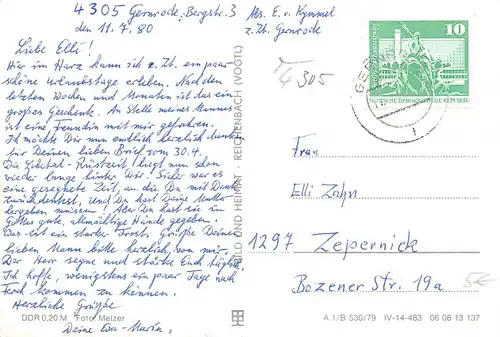 4305 Gernrode, Bergstr. 3
den 11.7.80
Liebe Elli!
Hier im Harz kann ich z. Zt. ein paar
schöne Urlaubstage erleben. Nach den
letzten Wochen und Monaten ist das ein
großes Geschenk. An Stelle meines Mannes
ist eine Freundin mit mir gefahren.
Ich möchte Dir nun endlich herzlich danken
für Deinen lieben Brief vom 30.4.
Die Rüstzeit liegt nun schon
wieder lange hinter Dir! Sicher war es
eine gesegnete Zeit, an die Du mit Dank
zurückdenkst. Und Du hast Deine Mutter
hergeben müssen. Aber Du hast sie in
Gottes gute, allmächtige Hände gegeben.
Das ist ein starker Trost. Grüße Deinen
lieben Mann bitte herzlich von mir.
Der Herr segne und stärke Euch täglich.
Ich hoffe, wenigstens ein paar Tage nach
kommen zu können.
Herzliche Grüße
Deine Eva-Maria.
DDR 0,20 M Foto: Melzer
BILD UND HEIMAT REICHENBACH (VOGTL)
Abs. E. v. Kymmel
z. Zt. Gernrode
4305
10
DEUTSCHE DEMOKRATISCHE REPUBLIK
Frau
Elli Zahn
1297 Zepernick
Bozener Str. 19a
5€
A 1/B 530/79 IV-14-483 06 08 13 137